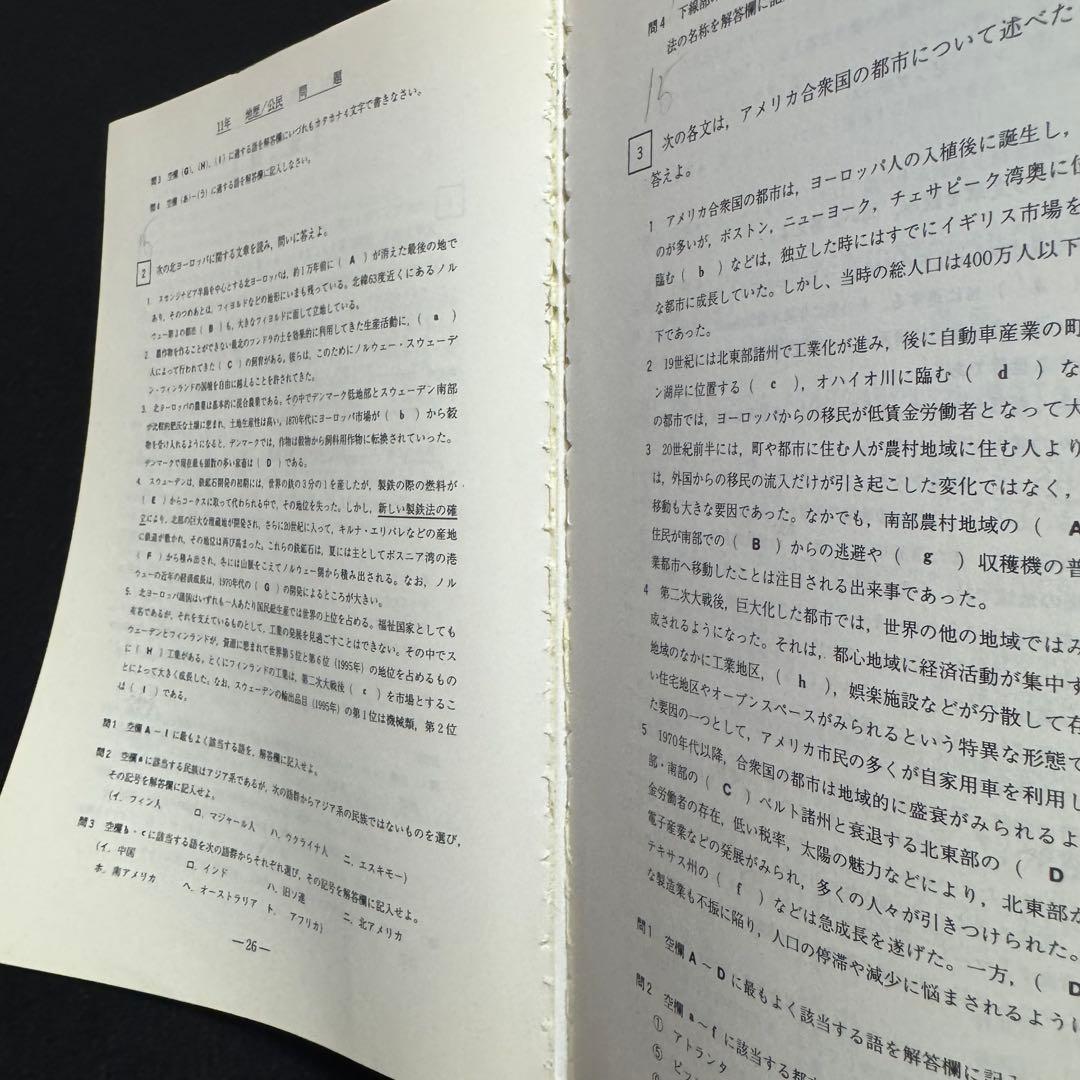 11年 地歴/公民 問題
問3 空欄(G)、(H)、(I)に適する語を解答欄にいづれもカタカナ4文字で書きなさい。
問4 空欄(あ)~(う)に適する語を解答欄に記入しなさい。
2 次の北ヨーロッパに関する文章を読み、問いに答えよ。
1. スカンジナビア半島を中心とする北ヨーロッパは、約1万年前に( A )が消えた最後の地で
あり、そのつめあとは、フィヨルドなどの地形にいまも残っている。北緯63度近くにあるノル
ウェー第3の都市( B )も、大きなフィヨルドに面して立地している。
2. 農作物を作ることができない最北のツンドラの土を効果的に利用してきた生産活動に、( a )
人によって行われてきた( C )の飼育がある。彼らは、このためにノルウェー・スウェーデ
ン・フィンランドの国境を自由に越えることを許されてきた。
3. 北ヨーロッパの農業は基本的に混合農業である。その中でデンマーク低地部とスウェーデン南部
が比較的肥沃な土壌に恵まれ、土地生産性は高い。1870年代にヨーロッパ市場が( b )から穀
物を受け入れるようになると、デンマークでは、作物は穀物から飼料用作物に転換されていった。
デンマークで現在最も頭数の多い家畜は( D )である。
4. スウェーデンは、鉄鉱石開発の初期には、世界の鉄の3分の1を産したが、製鉄の際の燃料が
( E )からコークスに取って代わられる中で、その地位を失った。しかし、新しい製鉄法の確
立により、北部の巨大な埋蔵地が開発され、さらに20世紀に入って、キルナ・エリバレなどの産地
に鉄道が敷かれ、その地位は再び高まった。これらの鉄鉱石は、夏には主としてボスニア湾の港
( F )から積み出され、冬には山脈をこえてノルウェー側から積み出される。なお、ノル
ウェーの近年の経済成長は、1970年代の( G )の開発によるところが大きい。
5. 北ヨーロッパ諸国はいずれも一人あたり国民総生産では世界の上位を占める。福祉国家としても
有名であるが、それを支えているものとして、工業の発展を見過ごすことはできない。その中でス
ウェーデンとフィンランドが、資源に恵まれて世界第5位と第6位(1995年)の地位を占めるもの
に( H )工業がある。とくにフィンランドの工業は、第二次大戦後( c )を市場とするこ
とによって大きく成長した。なお、スウェーデンの輸出品目(1995年)の第1位は機械類、第2位
は( I )である。
問1 空欄A~Iに最もよく該当する語を、解答欄に記入せよ。
問2 空欄aに該当する民族はアジア系であるが、次の語群からアジア系の民族ではないものを選び、
その記号を解答欄に記入せよ。
(イ. フィン人 ロ. マジャール人 ハ. ウクライナ人 ニ. エスキモー)
問3 空欄b・cに該当する語を次の語群からそれぞれ選び、その記号を解答欄に記入せよ。
(イ. 中国 ロ. インド ハ. 旧ソ連 ニ. 北アメリカ
ホ. 南アメリカ ヘ. オーストラリア ト. アフリカ)
—26—
問4 下線部の
法の名称を解答欄に記
15
3 次の各文は，アメリカ合衆国の都市について述べた
答えよ。
1 アメリカ合衆国の都市は，ヨーロッパ人の入植後に誕生し，
のが多いが，ボストン，ニューヨーク，チェサピーク湾奥に位
臨む( b )などは，独立した時にはすでにイギリス市場を
な都市に成長していた。しかし，当時の総人口は400万人以下
下であった。
2 19世紀には北東部諸州で工業化が進み，後に自動車産業の町
ン湖岸に位置する( c )，オハイオ川に臨む( d )な
の都市では，ヨーロッパからの移民が低賃金労働者となって大
3 20世紀前半には，町や都市に住む人が農村地域に住む人より
は，外国からの移民の流入だけが引き起こした変化ではなく，
移動も大きな要因であった。なかでも，南部農村地域の( A
住民が南部での( B )からの逃避や( g )収穫機の普
業都市へ移動したことは注目される出来事であった。
4 第二次大戦後，巨大化した都市では，世界の他の地域ではみ
成されるようになった。それは，都心地域に経済活動が集中す
地域のなかに工業地区，( h )，娯楽施設などが分散して存
い住宅地区やオープンスペースがみられるという特異な形態で
た要因の一つとして，アメリカ市民の多くが自家用車を利用し
5 1970年代以降，合衆国の都市は地域的に盛衰がみられるよ
部・南部の( C )ベルト諸州と衰退する北東部の( D
金労働者の存在，低い税率，太陽の魅力などにより，北東部か
電子産業などの発展がみられ，多くの人々が引きつけられた。
テキサス州の( f )などは急成長を遂げた。一方，( D
な製造業も不振に陥り，人口の停滞や減少に悩まされるように
問1 空欄A~Dに最もよく該当する語を解答欄に記
問2 空欄a~fに該当する都
① アトランタ
⑤ ピッ